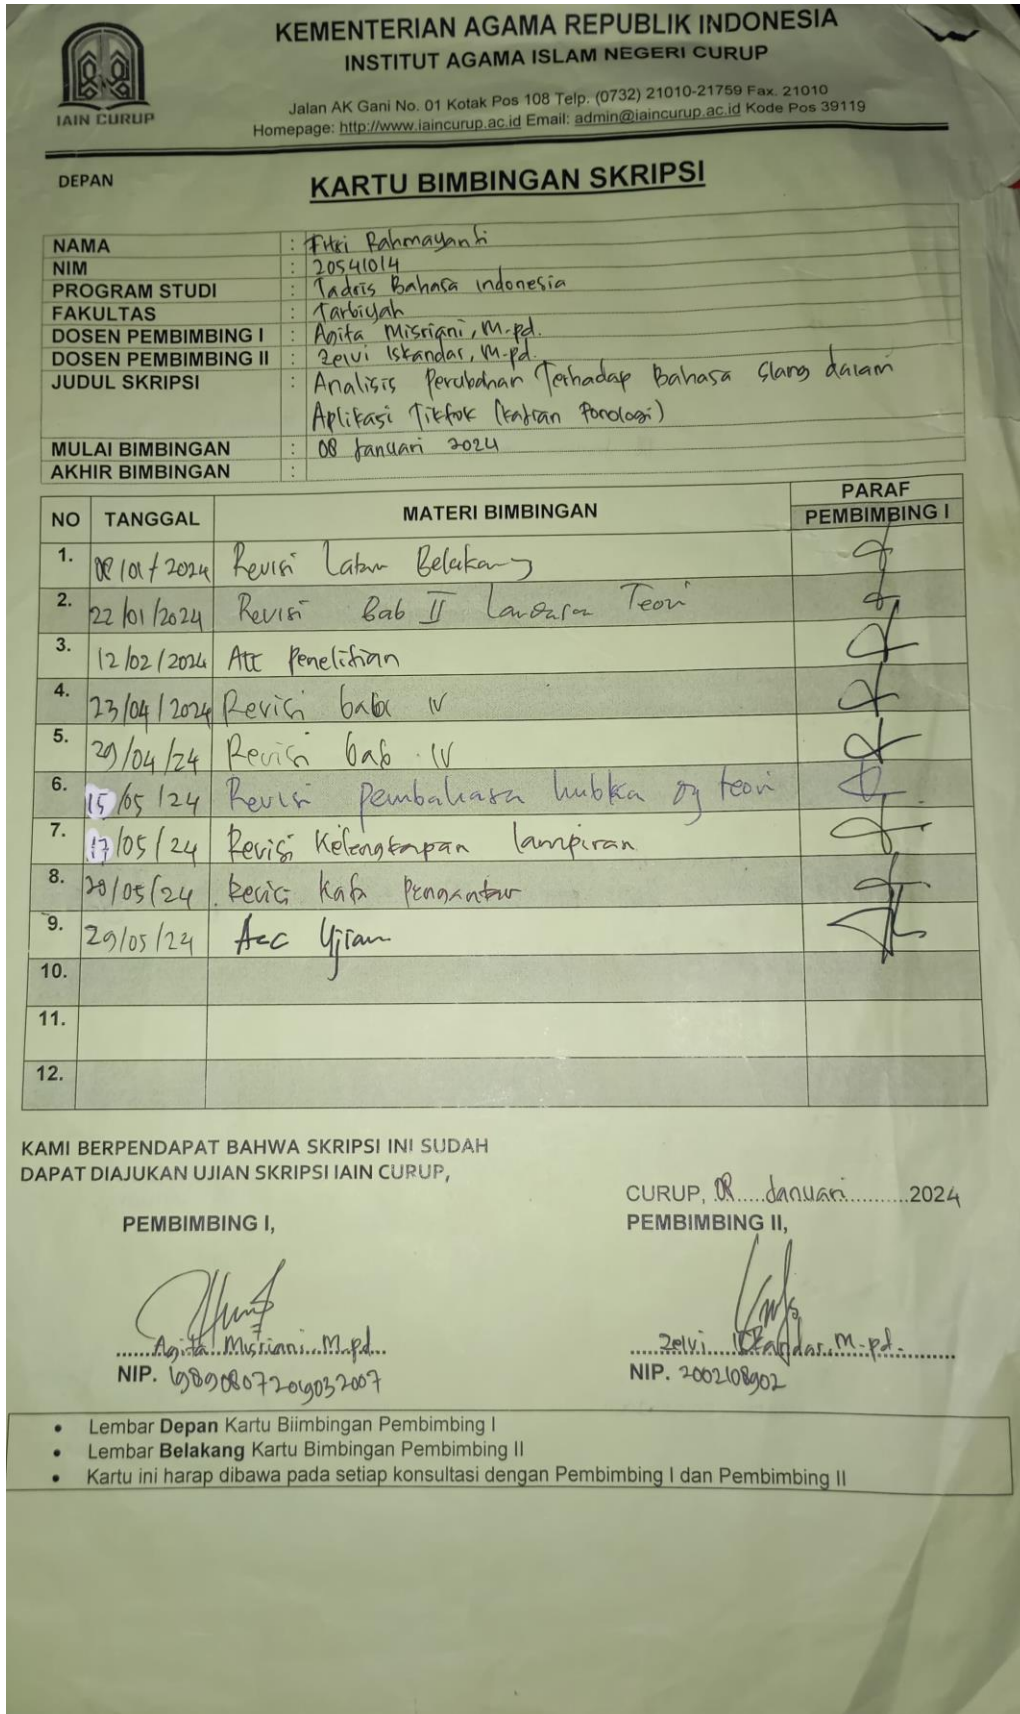 KEMENTERIAN AGAMA REPUBLIK INDONESIA
INSTITUT AGAMA ISLAM NEGERI CURUP
IAIN CURUP
Jalan AK Gani No. 01 Kotak Pos 108 Telp. (0732) 21010-21759 Fax. 21010
Homepage: http://www.iaincurup.ac.id Email: admin@iaincurup.ac.id Kode Pos 39119
DEPAN
KARTU BIMBINGAN SKRIPSI
NAMA : Fitri Rahmayanti
NIM : 20541014
PROGRAM STUDI : Tadris Bahasa indonesia
FAKULTAS : Tarbiyah
DOSEN PEMBIMBING I : Agita Misriani, M.pd.
DOSEN PEMBIMBING II : Zelvi Iskandar, M.pd.
JUDUL SKRIPSI : Analisis Perubahan Terhadap Bahasa slang dalam
Aplikasi Tiktok (kajian Fonologi)
MULAI BIMBINGAN : 08 Januari 2024
AKHIR BIMBINGAN :
NO TANGGAL MATERI BIMBINGAN PARAF
PEMBIMBING I
1. 08/01/2024 Revisi Latar Belakang
2. 22/01/2024 Revisi Bab II Landasan Teori
3. 12/02/2024 Acc Penelitian
4. 23/04/2024 Revisi bab IV
5. 29/04/24 Revisi bab IV
6. 15/05/24 Revisi pembahasa teori
7. 17/05/24 Revisi Kelengkapan lampiran
8. /05/24 Revisi Kata Pengantar
9. 29/05/24 Acc Ujian
10.
11.
12.
KAMI BERPENDAPAT BAHWA SKRIPSI INI SUDAH
DAPAT DIAJUKAN UJIAN SKRIPSI IAIN CURUP,
CURUP, 08 Januari 2024
PEMBIMBING I, PEMBIMBING II,
Agita Misriani, M.pd. Zelvi Iskandar, M.pd.
NIP. 198908072019032007 NIP. 2002108902
• Lembar Depan Kartu Biimbingan Pembimbing I
• Lembar Belakang Kartu Bimbingan Pembimbing II
• Kartu ini harap dibawa pada setiap konsultasi dengan Pembimbing I dan Pembimbing II